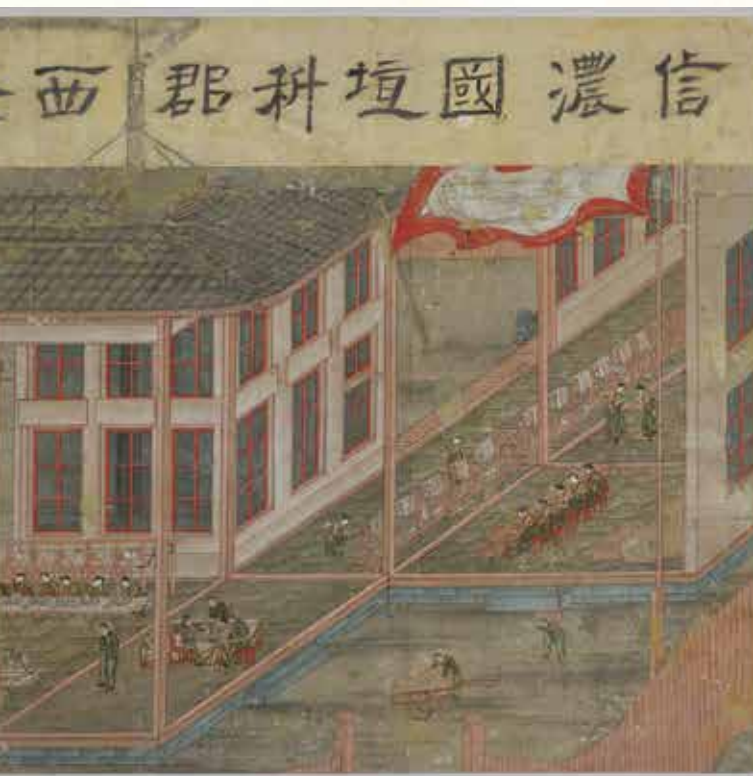 信濃國埴科郡西